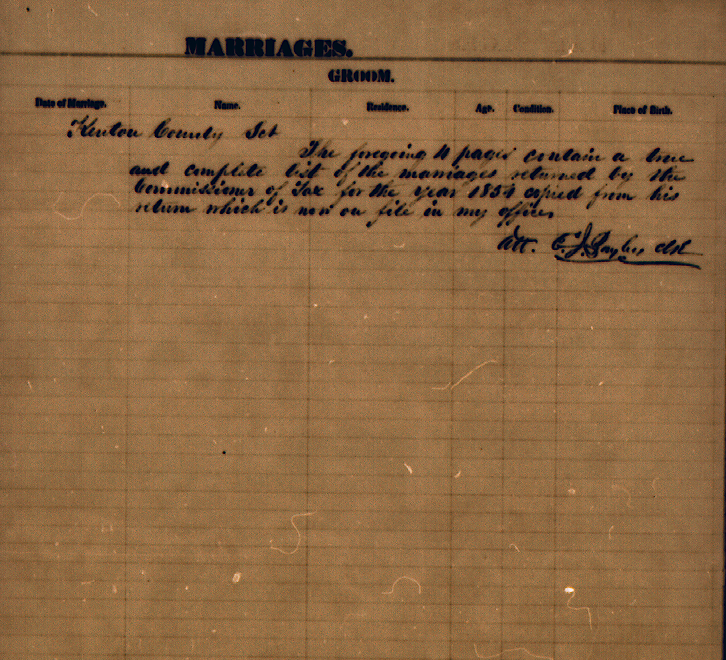 MARRIAGES.
GROOM.
Date of Marriage. Name. Residence. Age. Condition. Place of Birth.
Kenton County Sct
The foregoing 4 pages contain a true
and complete list of the marriages returned by the
Commissioner of Tax for the year 1854 copied from his
return which is now on file in my office.
Att. C. J.